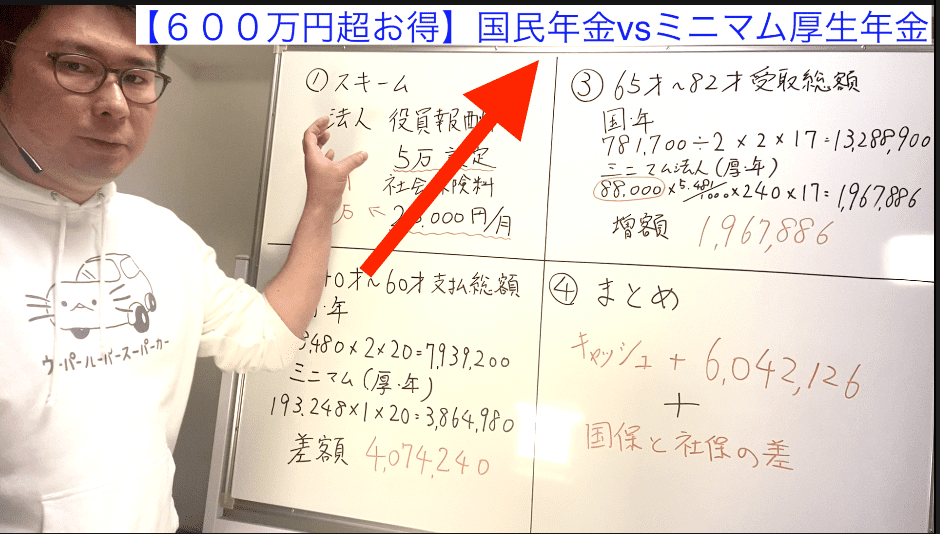 【６００万円超お得】国民年金vsミニマム厚生年金
① スキーム
法人 役員報酬
5万設定
社会保険料
000円/月
40才〜60才支払総額
年
3,480×2×20=7,939,200
ミニマム(厚.年)
193.248×1×20=3,864,980
差額 4,074,240
③ 65才〜82才受取総額
国.年
781,700÷2×2×17=13,288,900
ミニマム法人(厚.年)
88.000×5.481/1000×240×17=1,967,886
増額 1,967,886
④ まとめ
キャッシュ+6,042,126
+
国保と社保の差
ウーパールーパースーパーカー